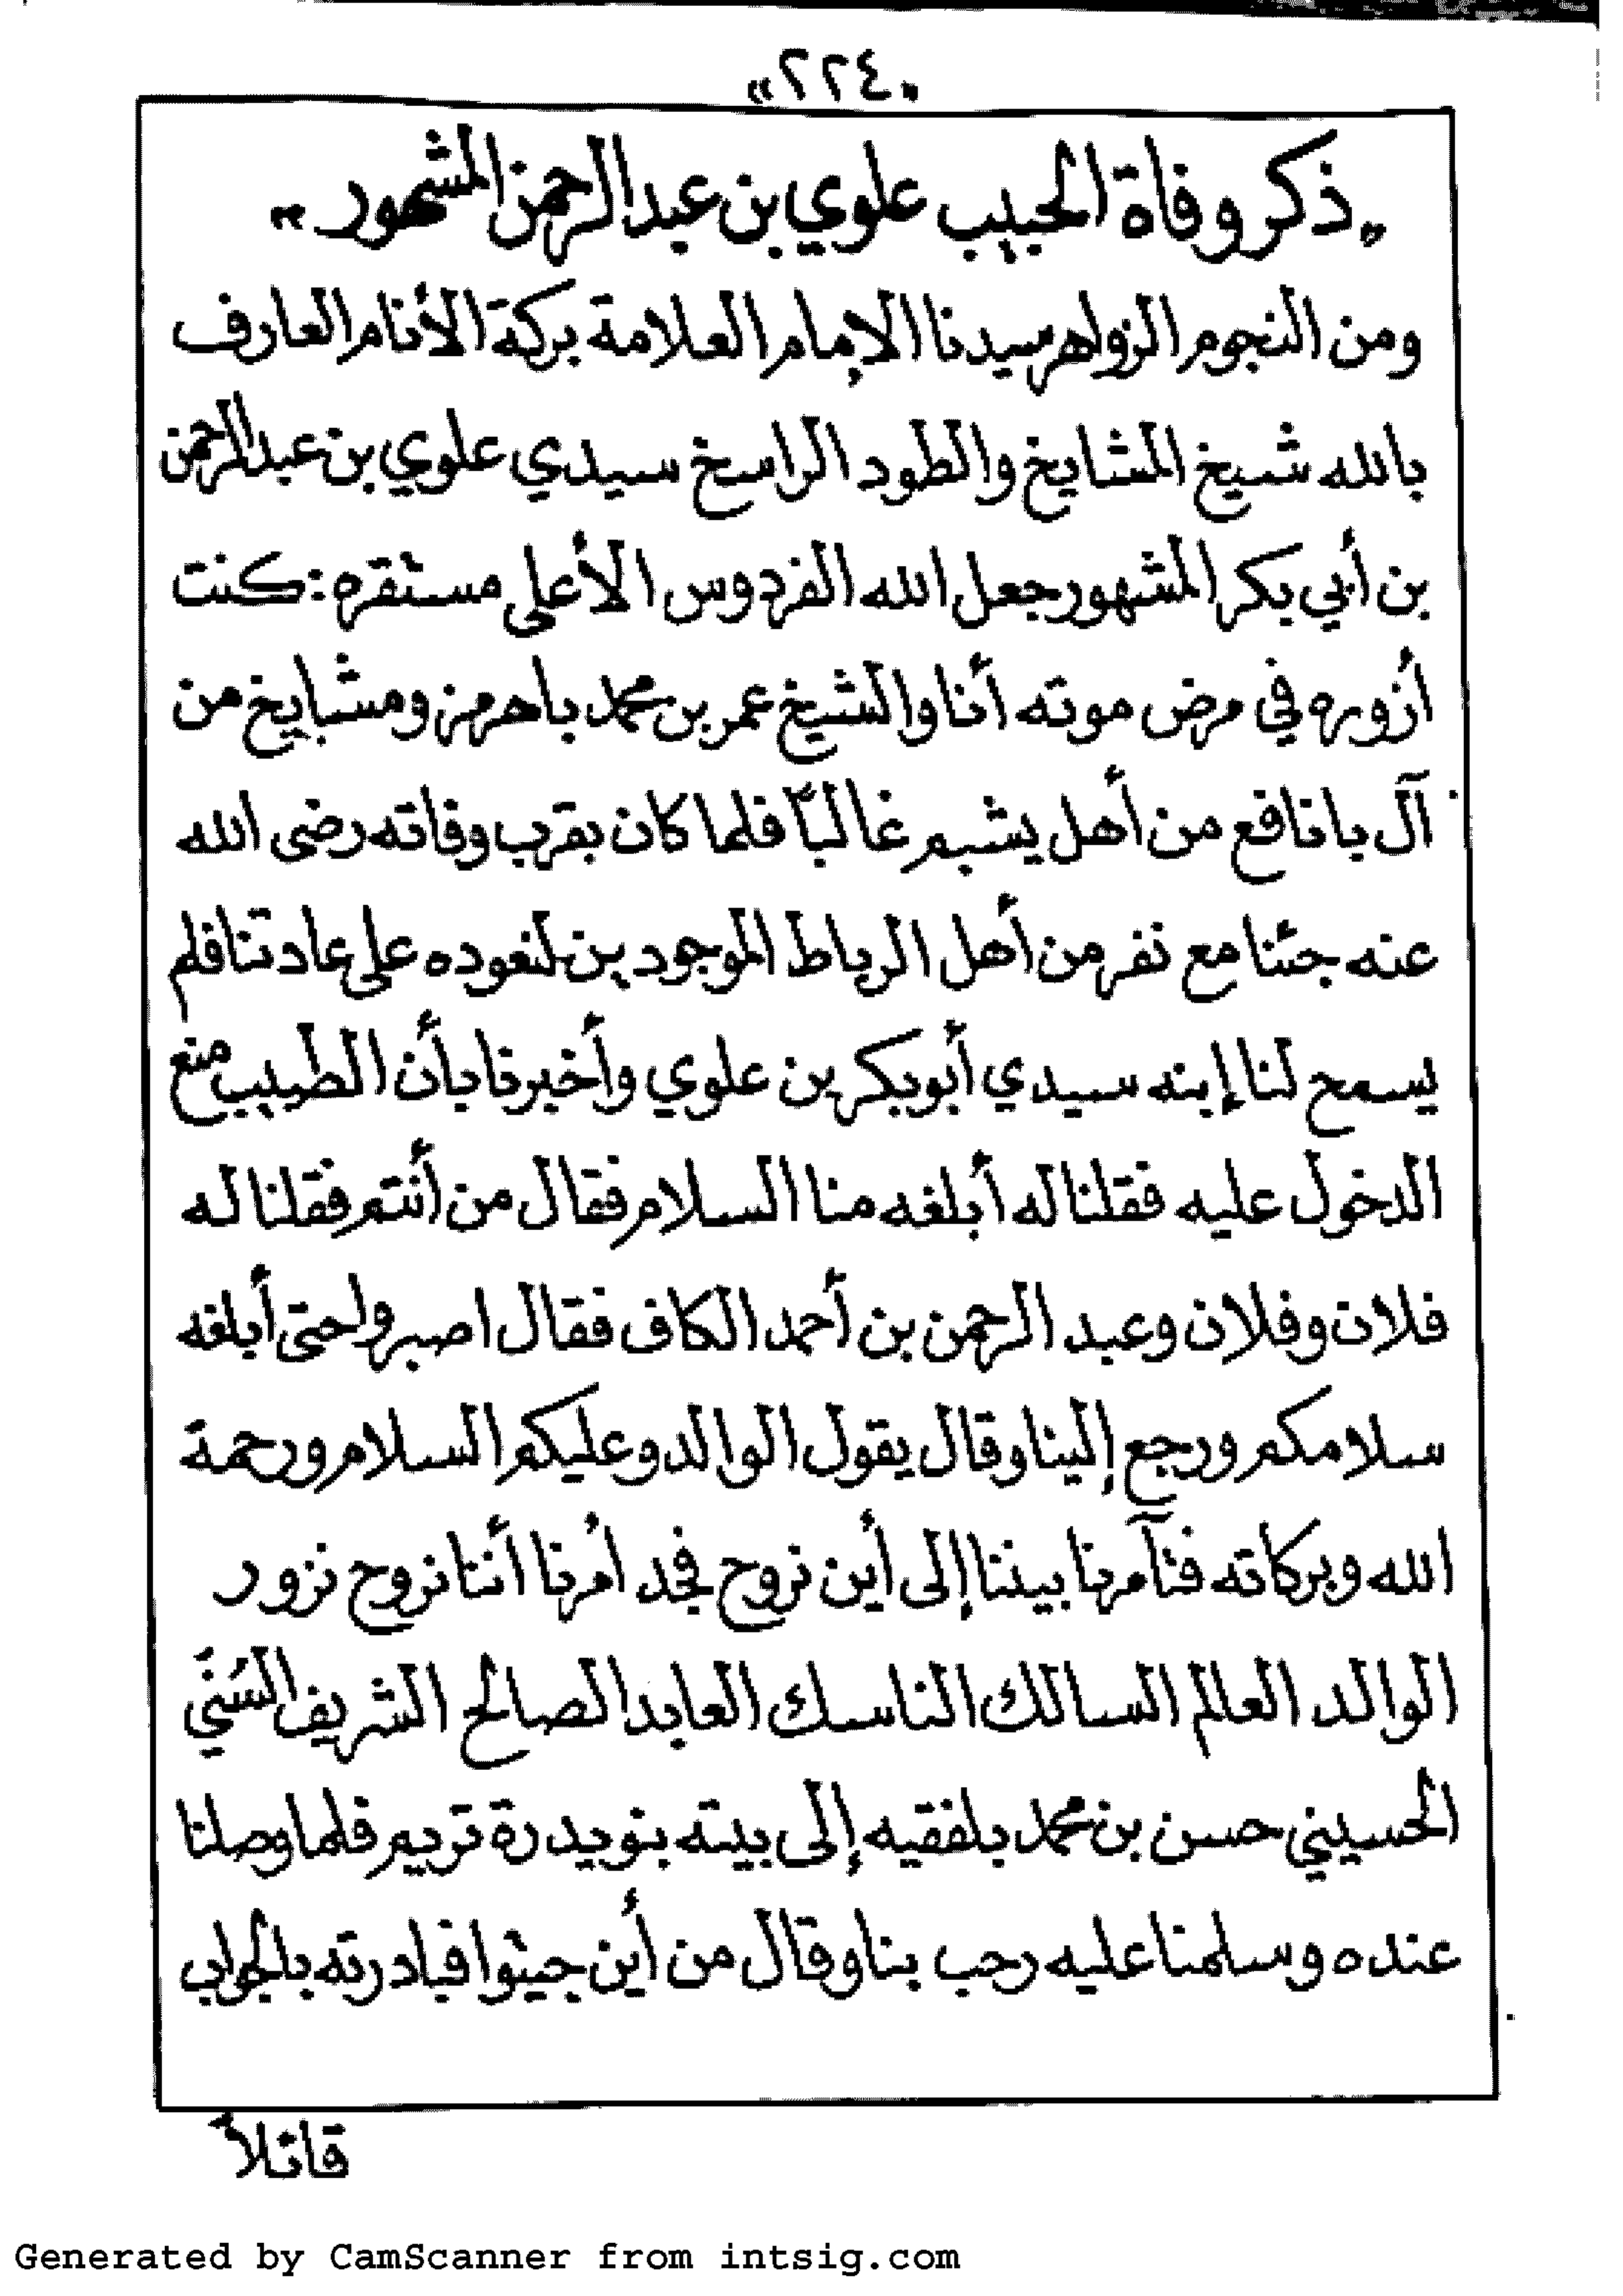 «٢٢٤»
«ذكر وفاة الحبيب علوي بن عبد الرحمن المشهور»
ومن النجوم الزواهر سيدنا الإمام العلامة بركة الأنام العارف
بالله شيخ المشايخ والطود الراسخ سيدي علوي بن عبد الرحمن
بن أبي بكر المشهور جعل الله الفردوس الأعلى مستقره : كنت
أزوره في مرض موته أنا والشيخ عمر بن محمد باهرمز ومشايخ من
آل بانافع من أهل يشبم غالباً فلما كان بقرب وفاته رضى الله
عنه جئنا مع نفر من أهل الرباط الموجودين لنعوده على عادتنا فلم
يسمح لنا إبنه سيدي أبوبكر بن علوي وأخبرنا بأن الطبيب منع
الدخول عليه فقلنا له أبلغه منا السلام فقال من أنتم فقلنا له
فلان وفلان وعبد الرحمن بن أحمد الكاف فقال اصبروا حتى أبلغه
سلامكم ورجع إلينا وقال يقول الوالد وعليكم السلام ورحمة
الله وبركاته فتآمرنا بيننا إلى أين نروح فجد أمرنا أننا نروح نزور
الوالد العالم السالك الناسك العابد الصالح الشريف السُني
الحسيني حسن بن محمد بلفقيه إلى بيته بنويدرة تريم فلما وصلنا
عنده وسلمنا عليه رحب بنا وقال من أين جيتوا فبادرته بالجواب
قائلاً
Generated by CamScanner from intsig.com